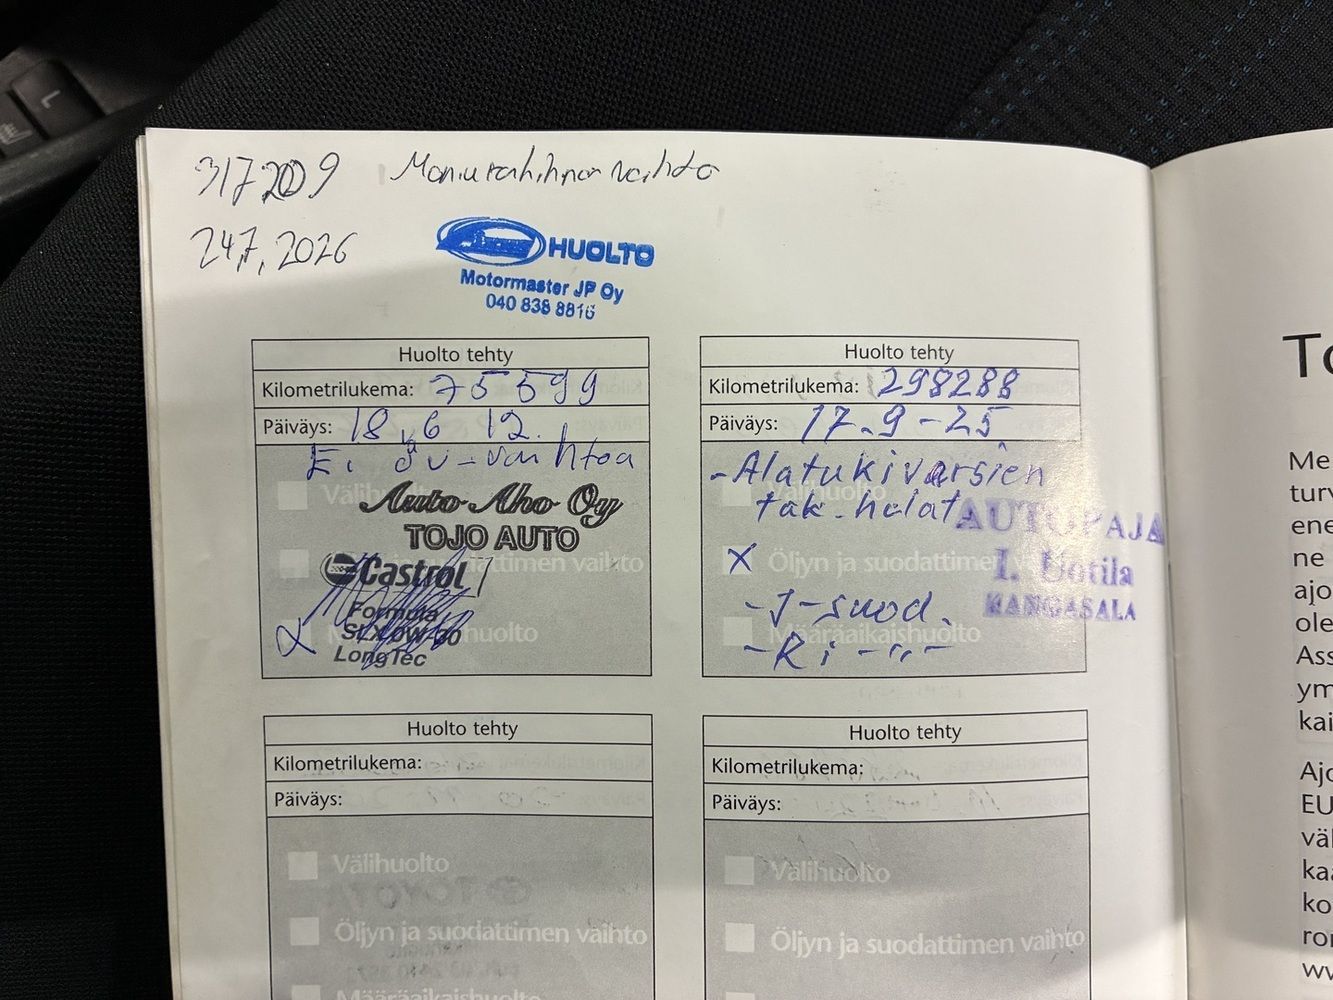 317209 Moniurahihnan vaihto
24.7.2026
HUOLTO
Motormaster JP Oy
040 838 8816
Huolto tehty
Kilometrilukema: 75599
Päiväys: 18.6 12.
Ei öv-vaihtoa
Auto Aho Oy
TOJO AUTO
Castrol
Formula
SLX 0W-30
LongTec
Huolto tehty
Kilometrilukema: 298288
Päiväys: 17.9-25
-Alatukivarsien
tak. helat
AUTOPAJA
I. Uotila
KANGASALA
X Öljyn ja suodattimen
-I-suod.
Määräaikaishuolto
-Ri -"-
Huolto tehty
Kilometrilukema:
Päiväys:
Välihuolto
Öljyn ja suodattimen vaihto
Määräaikaishuolto
Huolto tehty
Kilometrilukema:
Päiväys:
Välihuolto
Öljyn ja suodattimen vaihto
To
Me
turv
ene
ne
ajo
ole
Ass
ym
kai
Ajo
EU
väl
kaa
ko
ror
ww